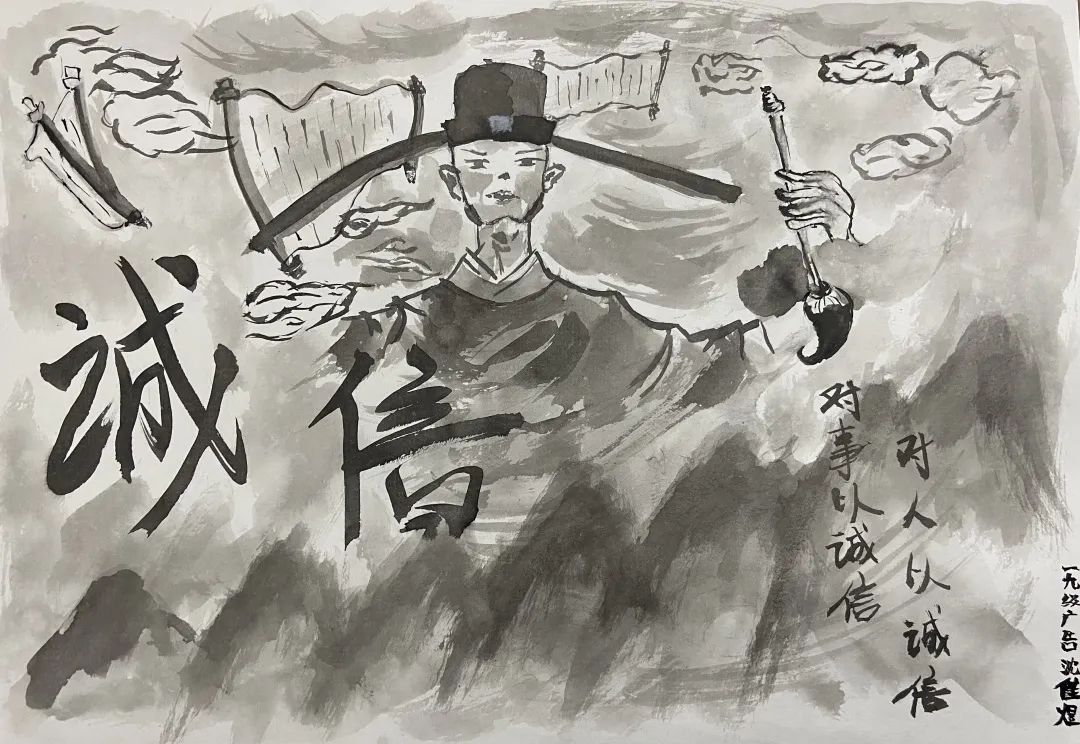 誠信
对人以诚信
对事以诚信
一九级广告沈佳煜